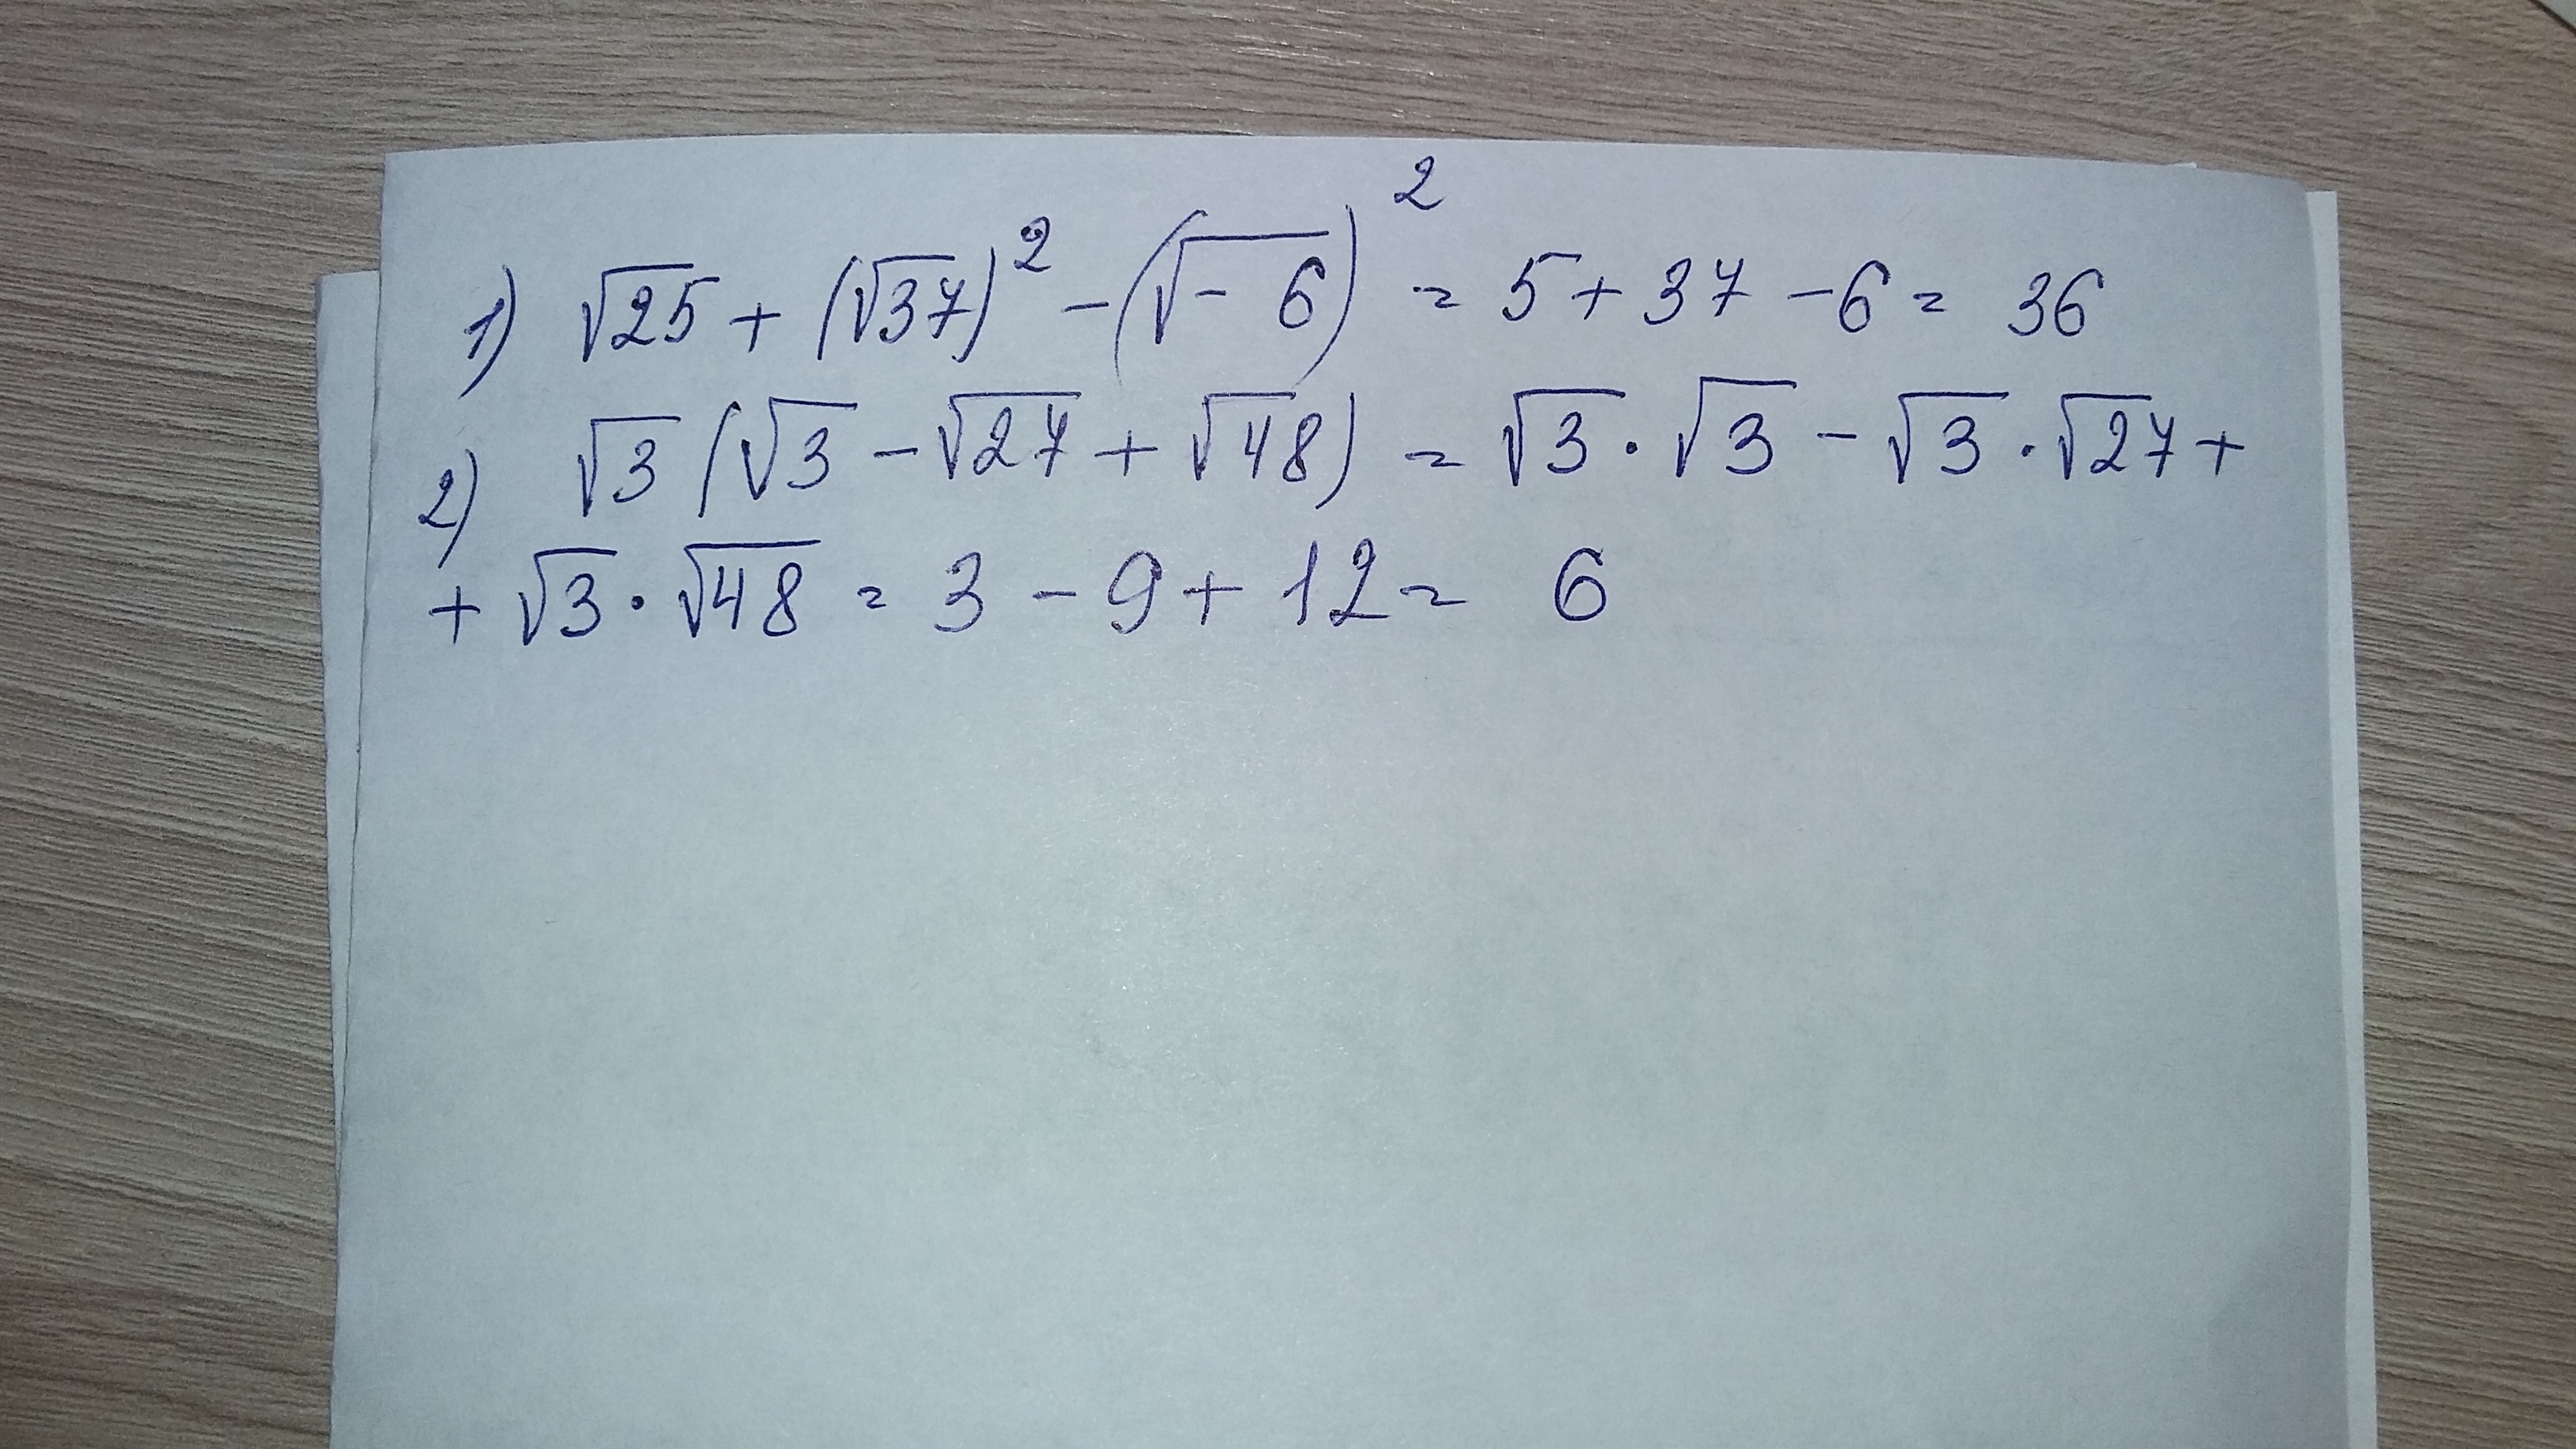 1) √25 + (√37)² - (√-6)² = 5 + 37 - 6 = 36
2) √3 (√3 - √27 + √48) = √3 · √3 - √3 · √27 +
+ √3 · √48 = 3 - 9 + 12 = 6